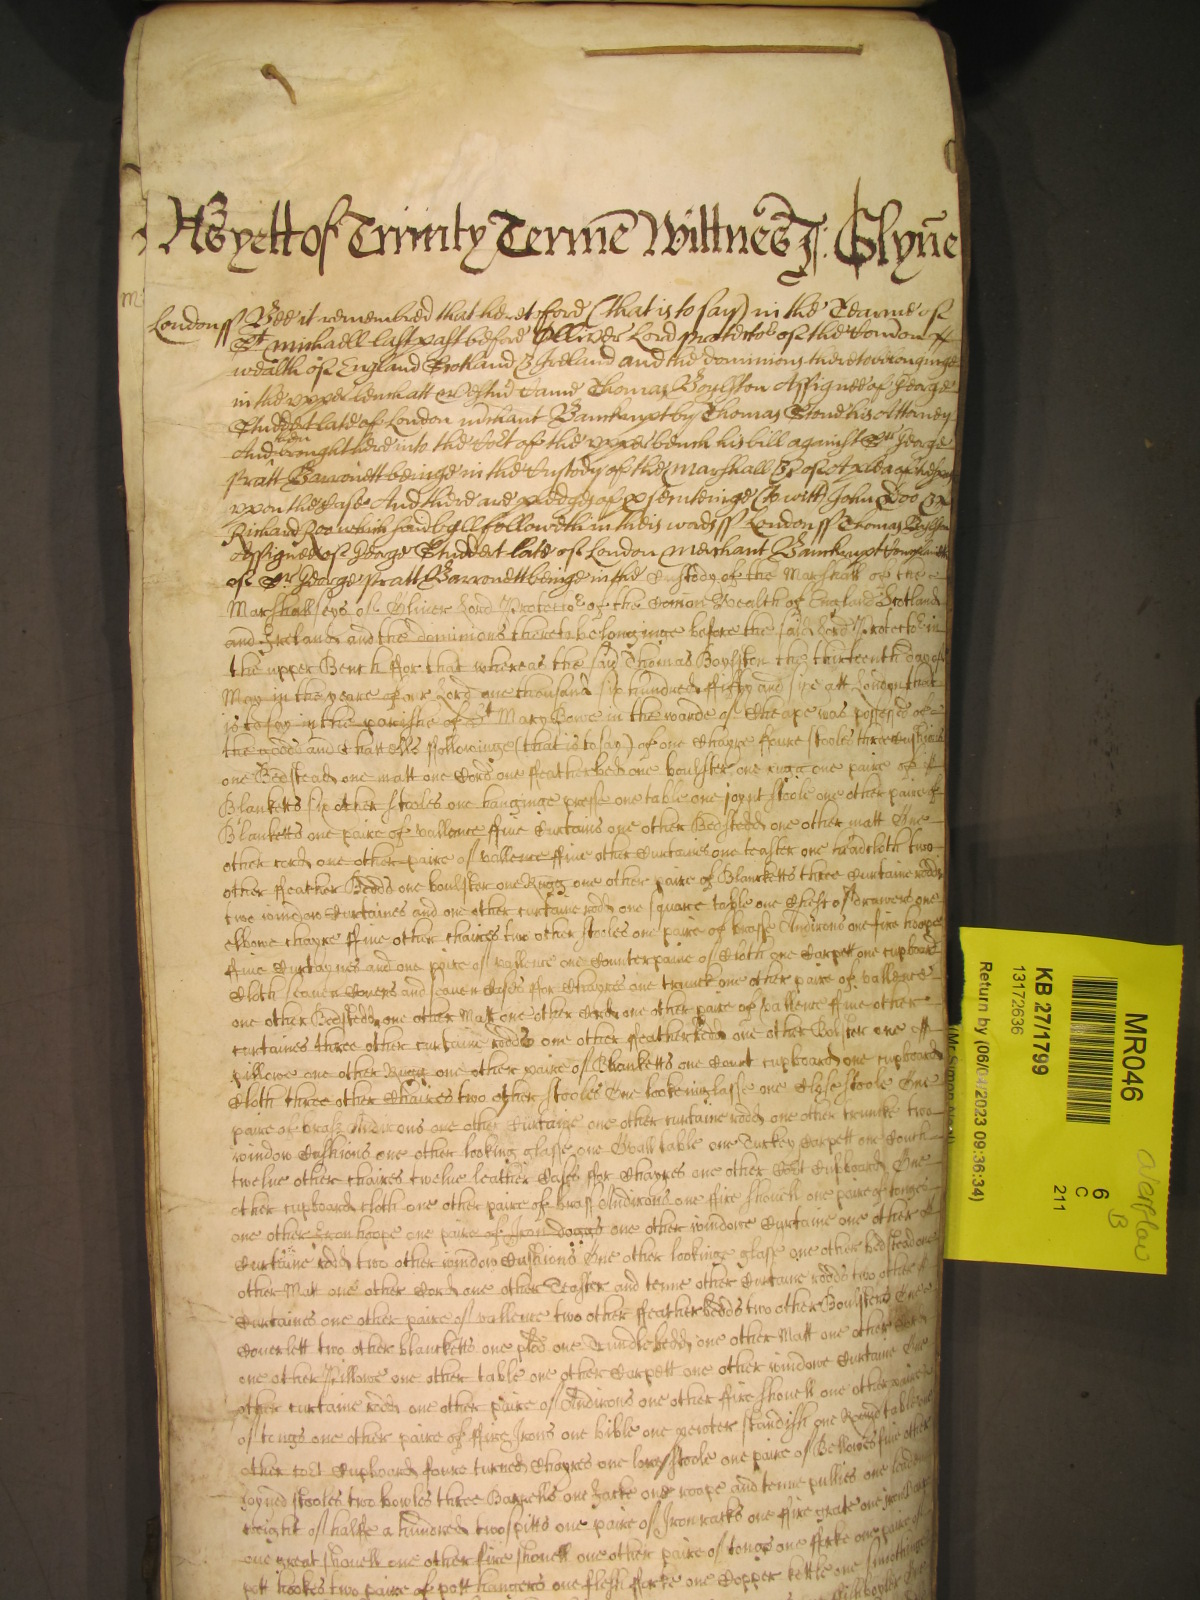 As yett of Trinity Terme Wittnes J: Glynne
Londonss Bee it remembred that heretofore (that is to say) in the Tearme of
St Michaell last past before Olliver Lord Protector of the Common
wealth of England Scotland & Ireland and the dominions thereto belonginge
in the upper bench att Westmr Came Thomas Boylston Assignee of George
Studdert late of London mrchant Banckrupt by Thomas Stone his Attorney
And brought here into the Cort of the upper bench his bill against Sr George
then
Pratt Barronett beinge in the Custody of the Marshall &c of A plea of trespas
upon the Case And there are pledges of prosecuteinge (to witt) John Doo &
Richard Roo which said bill followeth in theis words ss London ss Thomas Boylston
Assignee of George Studdert late of London Merchant Banckrupt Complaines
of Sr George Pratt Barronett beinge in the Custody of the Marshall of the
Marshallseys of Oliver Lord Protector of the Comon Wealth of England Scotland
and Ireland and the dominions thereto belonginge before the said Lord Protector in
the upper Bench ffor that whereas the said Thomas Boylston the thirteenth day of
May in the yeare of our Lord one thousand six hundred ffifty and six att London that
is to say in the parishe of St Mary Bowe in the warde of Cheape was possessed of
the goods and Chattells ffollowinge (that is to say) of one Chayre ffoure stooles three cushions
one Bedstead one matt one Cord one ffeatherbed one boulster one rugg one paire of
Blanketts six other stooles one hanginge presse one table one joynt stoole one other paire of
Blanketts one paire of vallence ffive Curtains one other Bedstedd one other matt One
other cord one other paire of vallence ffive other Curtaines one teaster one headcloth two
other ffeather Bedds one boulster one Rugg one other paire of Blancketts three Curtaine rodds
two window Curtaines and one other curtaine rodd one square table one Chest of drawers one
elbowe chayre ffive other chaires two other stooles one paire of brasse Andirons one fire hoope
ffive Curtaynes and one paire of vallence one Counterpaine of Cloth one Carpett one cupboard
Cloth seaven Covers and seaven Cases ffor Chayres one trunck one other paire of vallence
one other Bedstedd one other Matt one other Cord one other paire of vallence ffive other
curtaines three other curtaine rodds one other ffeatherbedd one other Bolster one
pillowe one other Rugg one other paire of Blanketts one Court cupboard one cupboard
Cloth three other Chaires two other stooles One lookeinglasse one Close stoole One
paire of brass Andirons one other Curtaine one other curtaine rodd one other truncke two
window Cushions one other looking glasse one Ovall table one Turkey Carpett one Couch
twelve other chaires twelve leather Cases ffor Chayres one other Court Cupboard One
other cupboard cloth one other paire of brass Andirons one ffire shovell one paire of tonges
one other Iron hoope one paire of Iron doggs one other windowe Curtaine one other
Curtaine rodd two other window Cushions One other lookinge glasse one other bedstead one
other Matt one other Cord one other Teaster and tenne other Curtaine rodds two other
Curtaines one other paire of vallence two other ffeatherbedds two other Boulsters One
Coverlett two other blancketts one pled one Trundlebedd one other Matt one other Cord
one other Pillowe one other table one other Carpett one other windowe Curtaine One
other curtaine rodd one other paire of Andirons one other ffire shovell one other paire
of tongs one other paire of ffire Irons one bible one pewter standish one Round table
other Court Cupboard foure turned Chayres one lowe stoole one paire of Bellowes five other
joyned stooles two bowles three Barrells one Jacke one roope and tenne pullies one lead
weight of halfe a hundred two spitts one paire of Iron racks one ffire grate one iron barr
one great shovell one other fire shovell one other paire of tongs one fforke one paire of
pott hookes two paire of pott hangers one flesh fforke one Copper kettle one
MR046
KB 27/1799
13172636
Return by (06/04/2023 09:36:34)
6
C
211
overflow
B